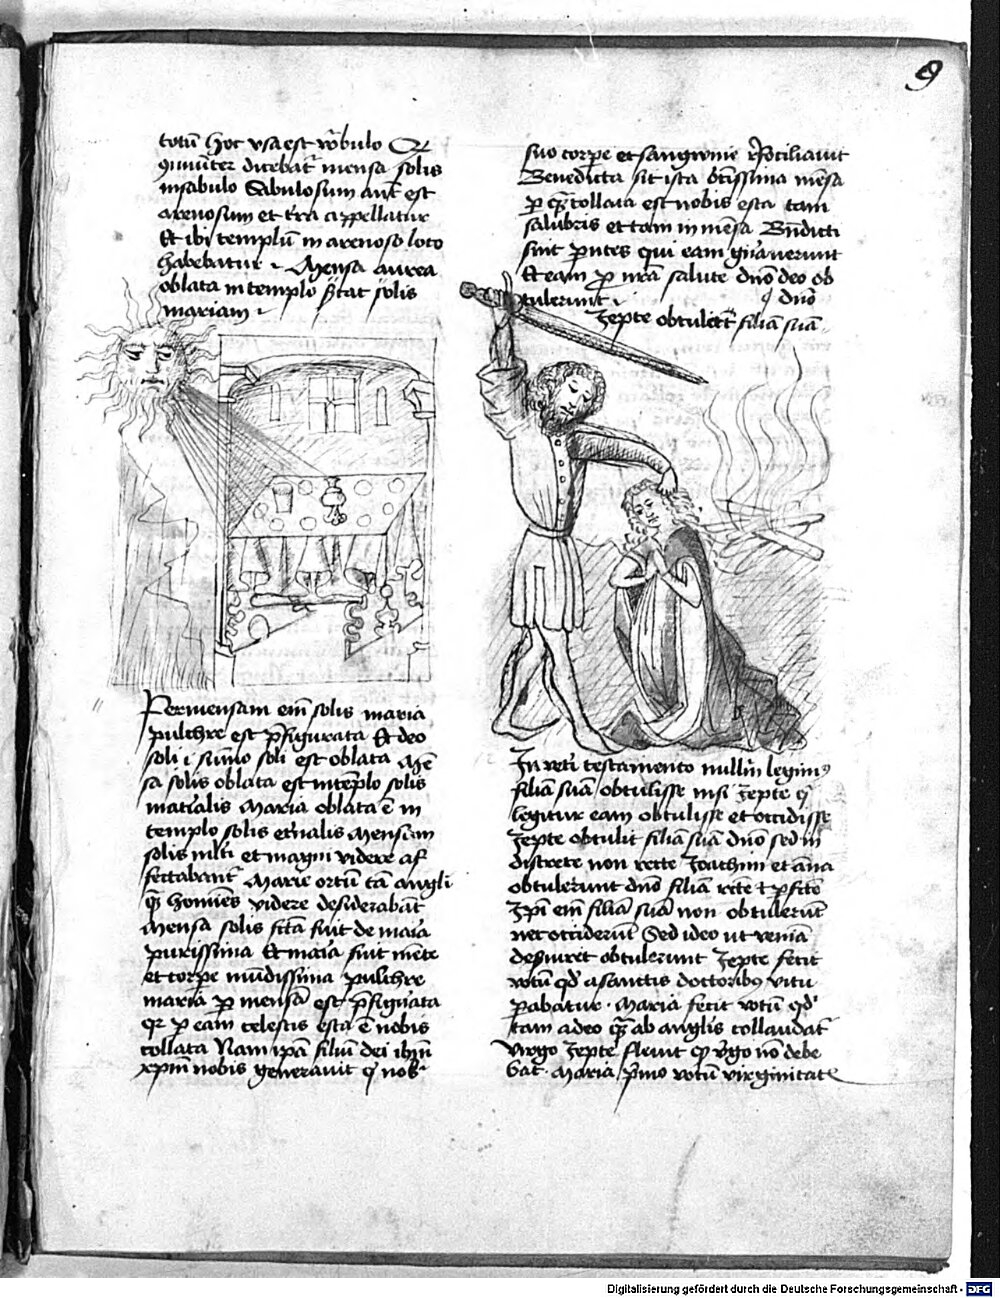 9
totū hoc vsa est vōbulo Qr
ɔmūiter dicebat̄ mensa solis
in sabulo Sabulosum aut̄ est
arenosum et tr̄a appellatur
Et ibi templū in arenoso loco
habebatur Mensa aurea
oblata in templo solis
mariam
Per mensam em̄ solis maria
pulchre est p̄figurata Et deo
soli i sūmo soli est oblata Mē
sa solis oblata est in tēplo solis
mat̄ialis Maria oblata ē in
templo solis et̄nalis Mensam
solis ml̄ti et magni videre af
fectabant̄ Marie ortū tā angl̄i
q̄ʒ homīes videre desiderabāt
Mensa solis fc̄ta fuit de mat̄ia
purissima Et maria fuit mēte
et corpe mūdissima pulchre
maria p mensā est p̄figurata
qr p eam celestis esca ē nobis
collata Nam ip̄a filiū dei ih̄m
xp̄m nobis generauit q̄ nos
suo corpe et sangwine
Benedicta sit ista bt̄issima mēsa
p q̄ʒ collata est nobis esca tam
salubris et tam inmēsa Bn̄dicti
sint p̄ntes qui eam gn̄auerunt
Et eam p nr̄a salute dn̄o deo ob
tulerunt
dn̄o
Jepte obtulit filiā suā
In vet̄i testamento nullū legim⁹
filiā suā obtulisse nisi Jepte q̄
legitur eam obtulisse et occidisse
Jepte obtulit filiā suā dn̄o sed in
discrete non recte Joachim et an̄a
obtulerunt dn̄o filiā rite ⁊ p̄fc̄te
Ip̄i em̄ filiā suā non obtulerūt
nec occiderūt Sed ideo ut
deseruiret obtulerunt Jepte fecit
votū qd̄ a sanctis doctoribꝰ vitu
pabatur Maria fecit votū qd̄
tam a deo q̄ʒ ab anglis collaudat̄
Virgo Jepte fleuit q̄ v̄go nō debe
bat Maria p̄mo votū virginitate
Digitalisierung gefördert durch die Deutsche Forschungsgemeinschaft - DFG